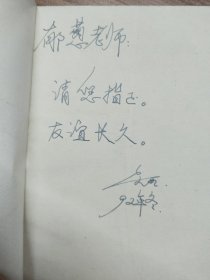 郁葱老师:
请您指正。
友谊长久。
92年冬.